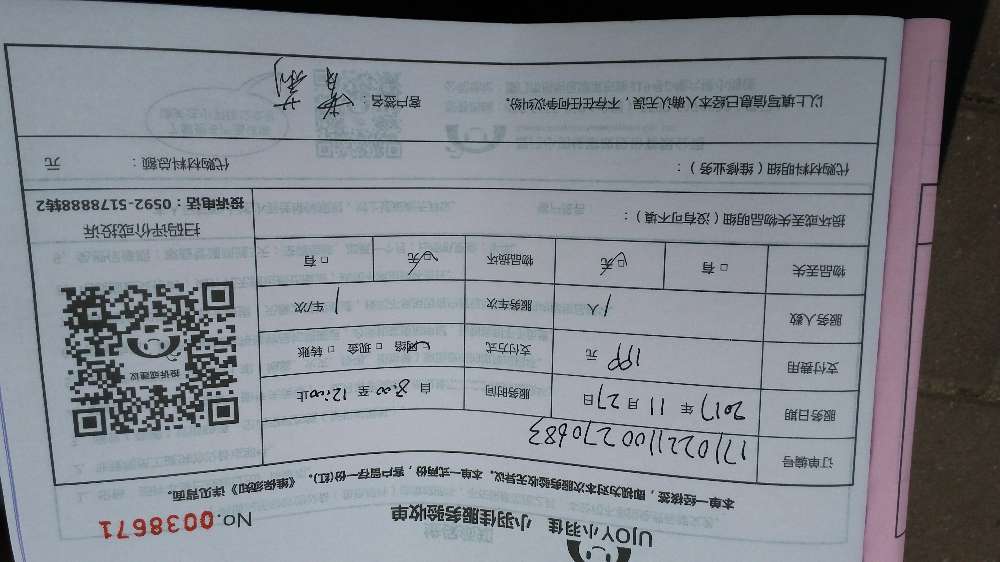 UJOY小羽佳 小羽佳服务验收单
No.0038671
本单一经核签，即视为对本次服务验收无异议。本单一式两份，客户留存一份(红)。《维保须知》详见背面。
订单编号 17102221100270683
服务日期 2017年11月27日 服务时间 自8:00至12:00止
支付费用 199元 支付方式 网络 □现金 □转账
服务人数 1人 服务车次 1车/次
物品丢失 □有 ☑无 物品损坏 ☑无 □有
投诉或建议
扫码评价或投诉
投诉电话：0592-5178888转2
损坏或丢失物品明细（没有可不填）：
代购材料明细（维修业务）： 代购材料总额： 元
以上填写信息已经本人确认无误，不存在任何争议纠纷。 客户签名：